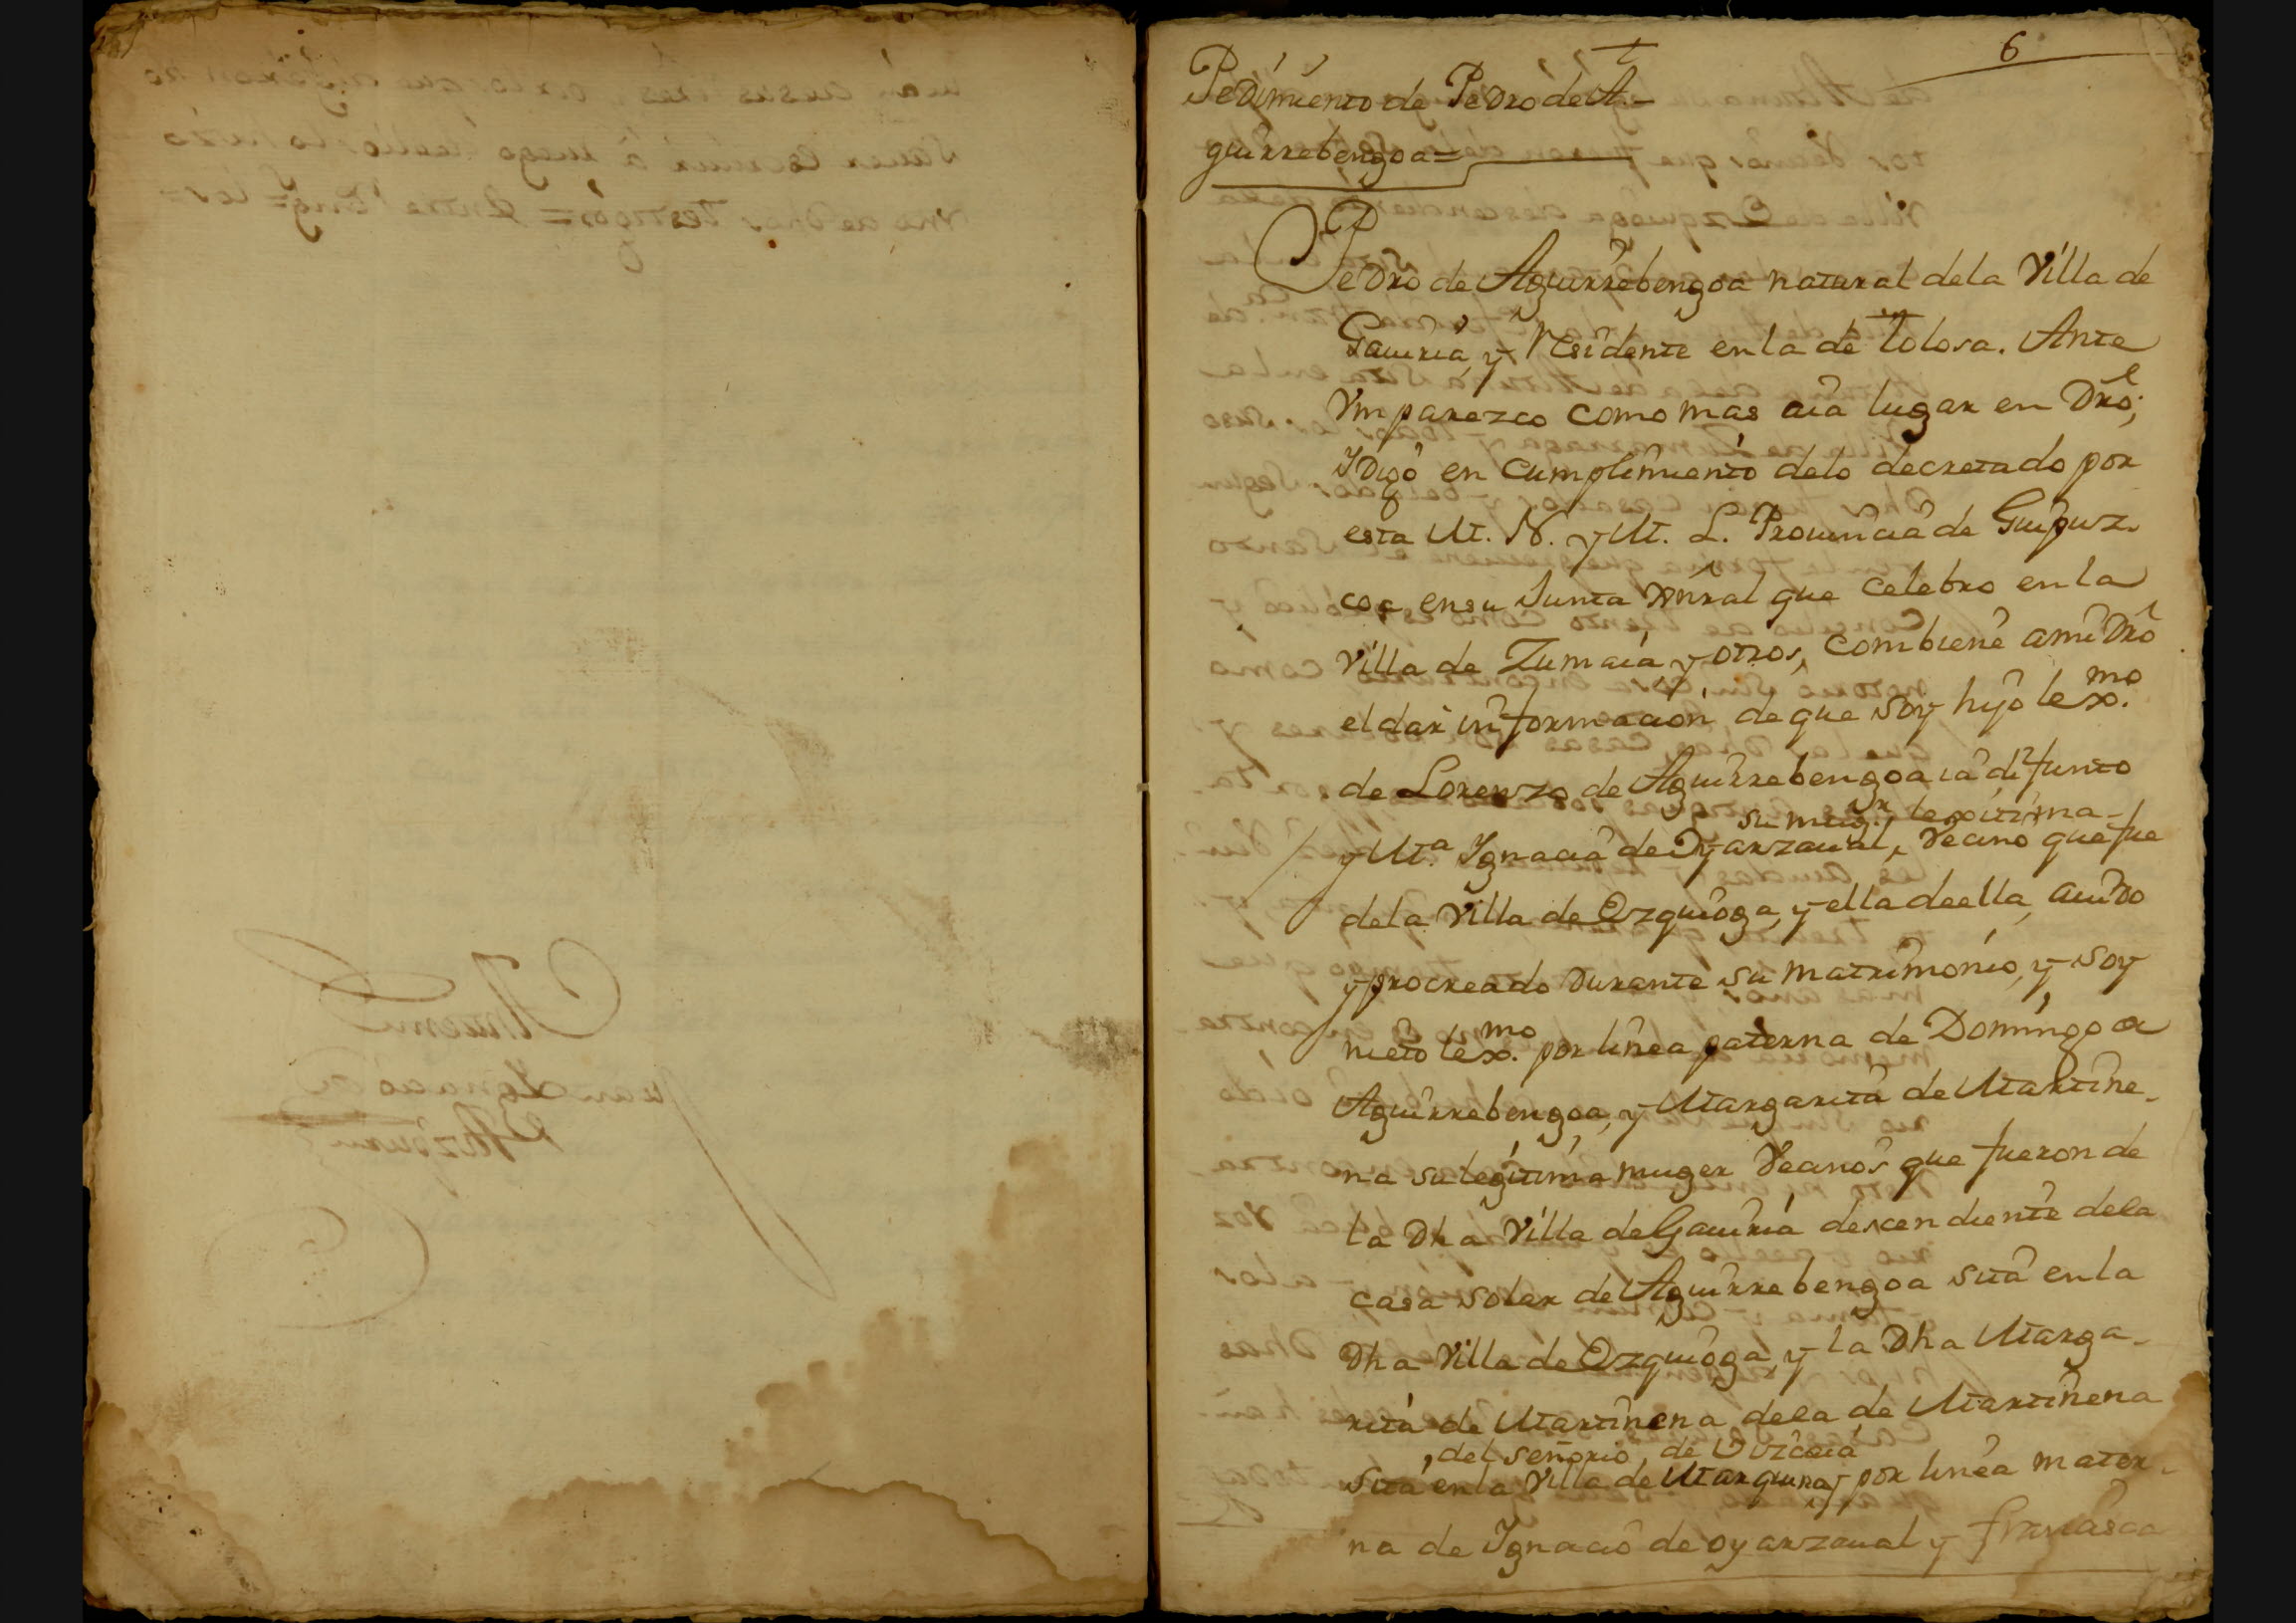 6
Pedimiento de Pedro de A-
guirrebengoa=
Pedro de Aguirrebengoa natural dela Villa de
Gauiria, y Residente en la de Tolosa. Ante
Vm parezco como mas aia lugar en Dro;
y Digo en cumplimiento delo decretado por
esta M. N. y M. L. Prouincia de Guipuz-
coa en su Junta Xnral que celebro en la
Villa de Zumaia, y otros, combiene a mi Dro
el dar informacion de que soy hijo lexmo.
de Lorenzo de Aguirrebengoa ia difunto
su mugr. lexitima-
y Ma. Ignacia de Oyarzaual, Vecino que fue
dela Villa de Ezquioga, y ella de ella, auido
y procreado Durante su matrimonio, y soy
nieto lexmo. por linea paterna de Domingo de
Aguirrebengoa, y Margarita de Martine-
na su legitima muger Vecinos que fueron de
la Dha Villa de Gauiria descendiente dela
casa solar de Aguirrebengoa sita en la
Dha Villa de Ezquioga, y la Dha Marga-
rita de Martinena dela de Martinena
, del señorio de Vizcaia
sita en la Villa de Marquina, y por linea mater-
na de Ignacio de oyarzaual y francisca